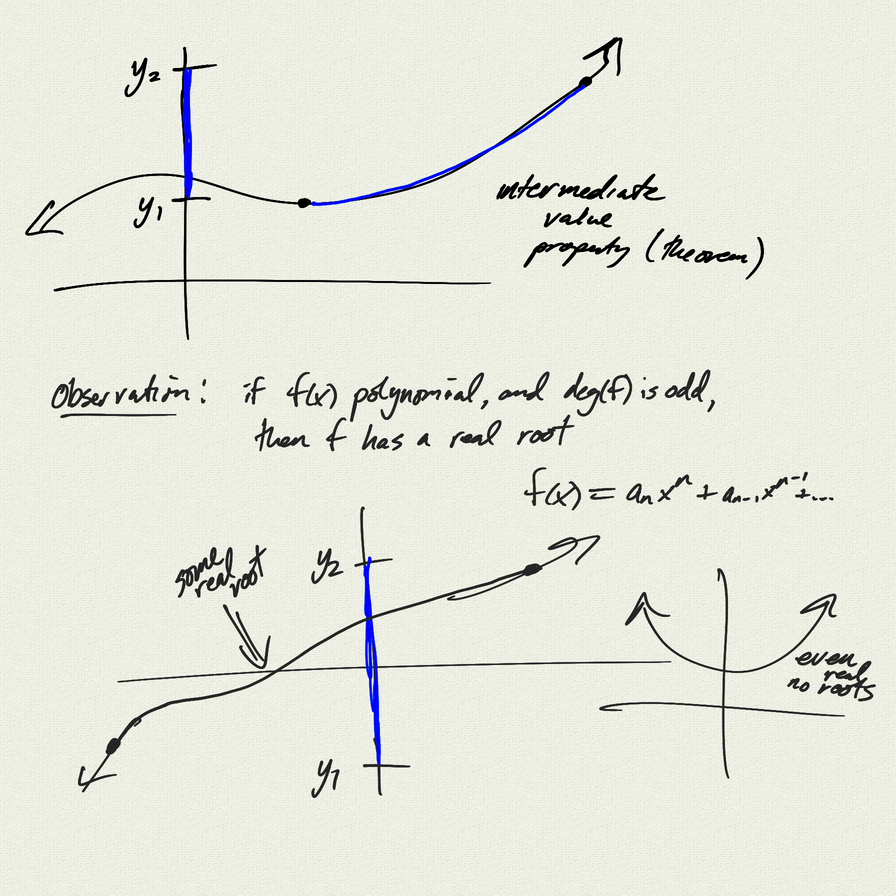 y₂
y₁
intermediate
value
property (theorem)
Observation: if f(x) polynomial, and deg(f) is odd,
then f has a real root
f(x) = aₙxⁿ + aₙ₋₁xⁿ⁻¹ + ...
some
real
root
y₂
y₁
even
real
no roots